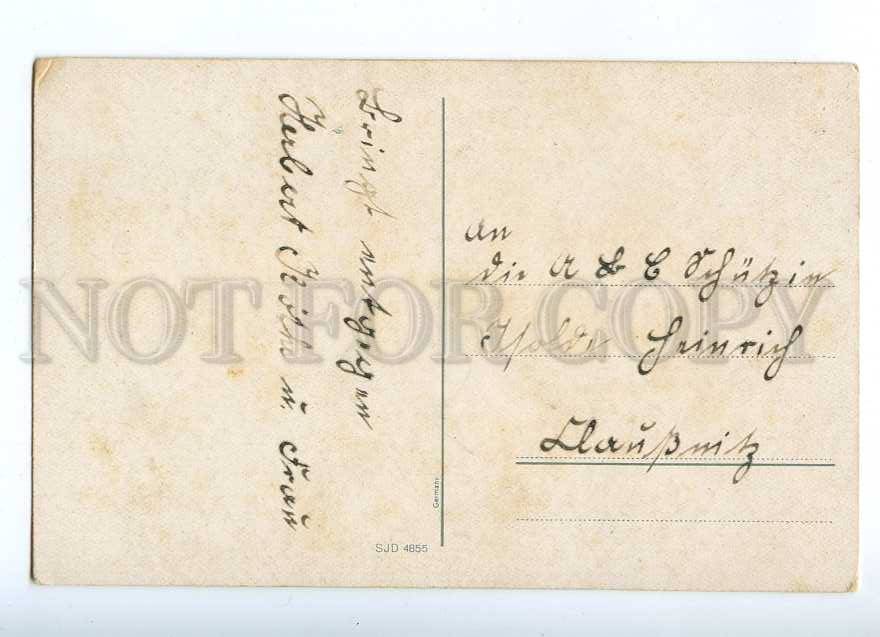 Bringt entgegen
Herbert Köth u. Frau
An
die A B C Schützin
Isolde Heinrich
Claußnitz
Germany
SJD 4855
NOT FOR COPY